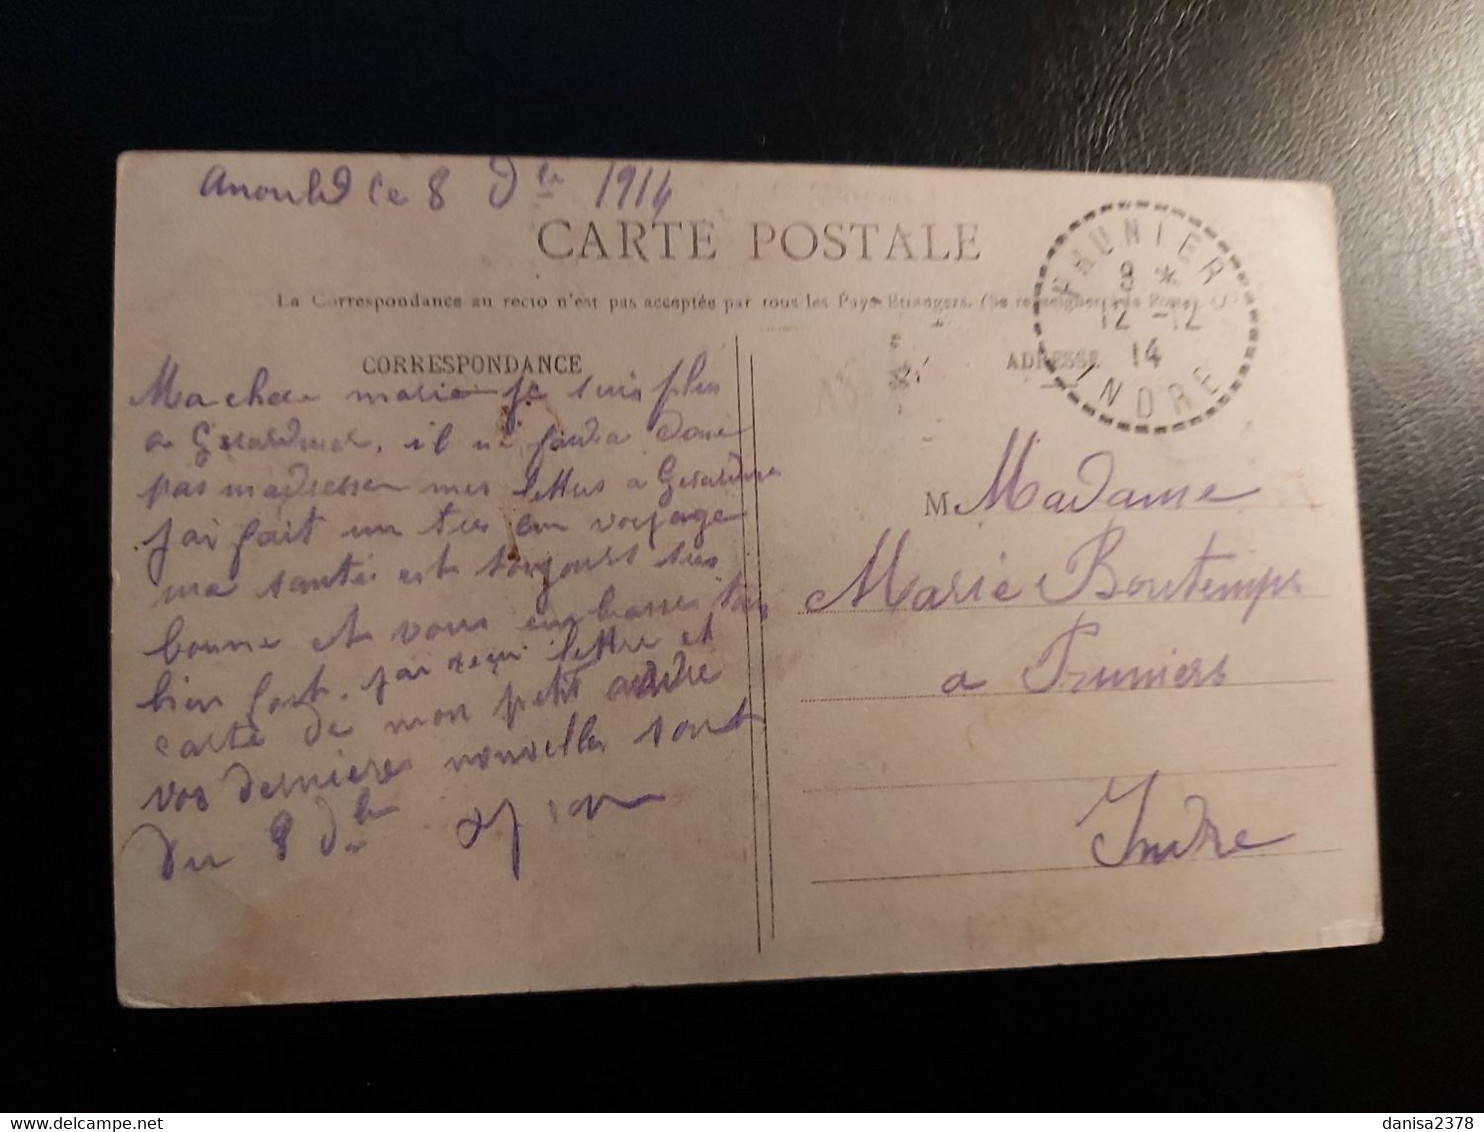 Anould Le 8 Dbre 1914
CARTE POSTALE
La Correspondance au recto n'est pas acceptée par tous les Pays Etrangers. (Se renseigner à la Poste)
PRUNIERS
8 *
12 -12
14
INDRE
CORRESPONDANCE
ADRESSE
Ma chere marie je suis plus
a Gerardmer, il ne faudra donc
pas madresser mes lettres a Gerardmer
jai fait un tres bon voyage
ma santé est toujours tres
bonne et vous embrasse tous
bien fort. jai reçu lettre et
carte de mon petit andre
vos dernieres nouvelles sont
du 8 dbre
M Madame
Marie Bontemps
a Pruniers
Indre
danisa2378